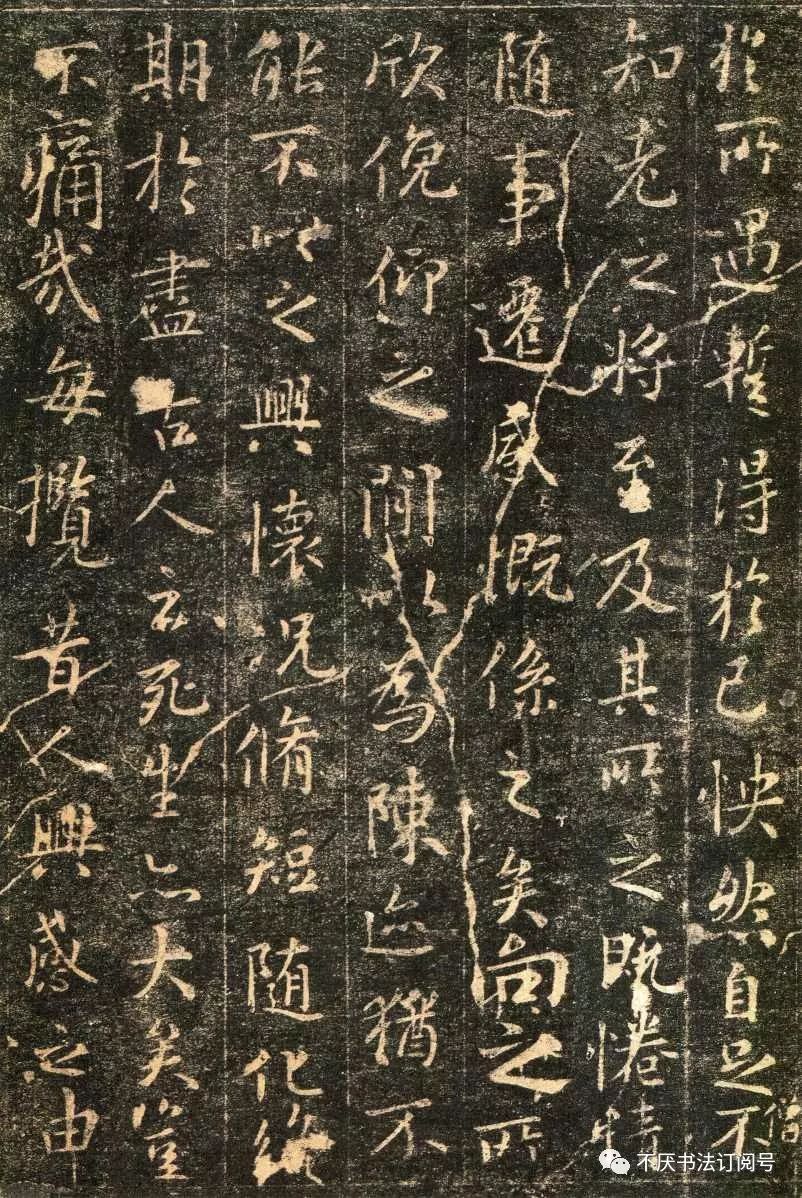 於所遇暫得於己怏然自足不
僧
知老之將至及其所之既惓情
隨事遷感慨係之矣向之所
欣俛仰之間以為陳迹猶不
能不以之興懷況脩短隨化終
期於盡古人云死生亦大矣豈
不痛哉每攬昔人興感之由
不厌书法订阅号